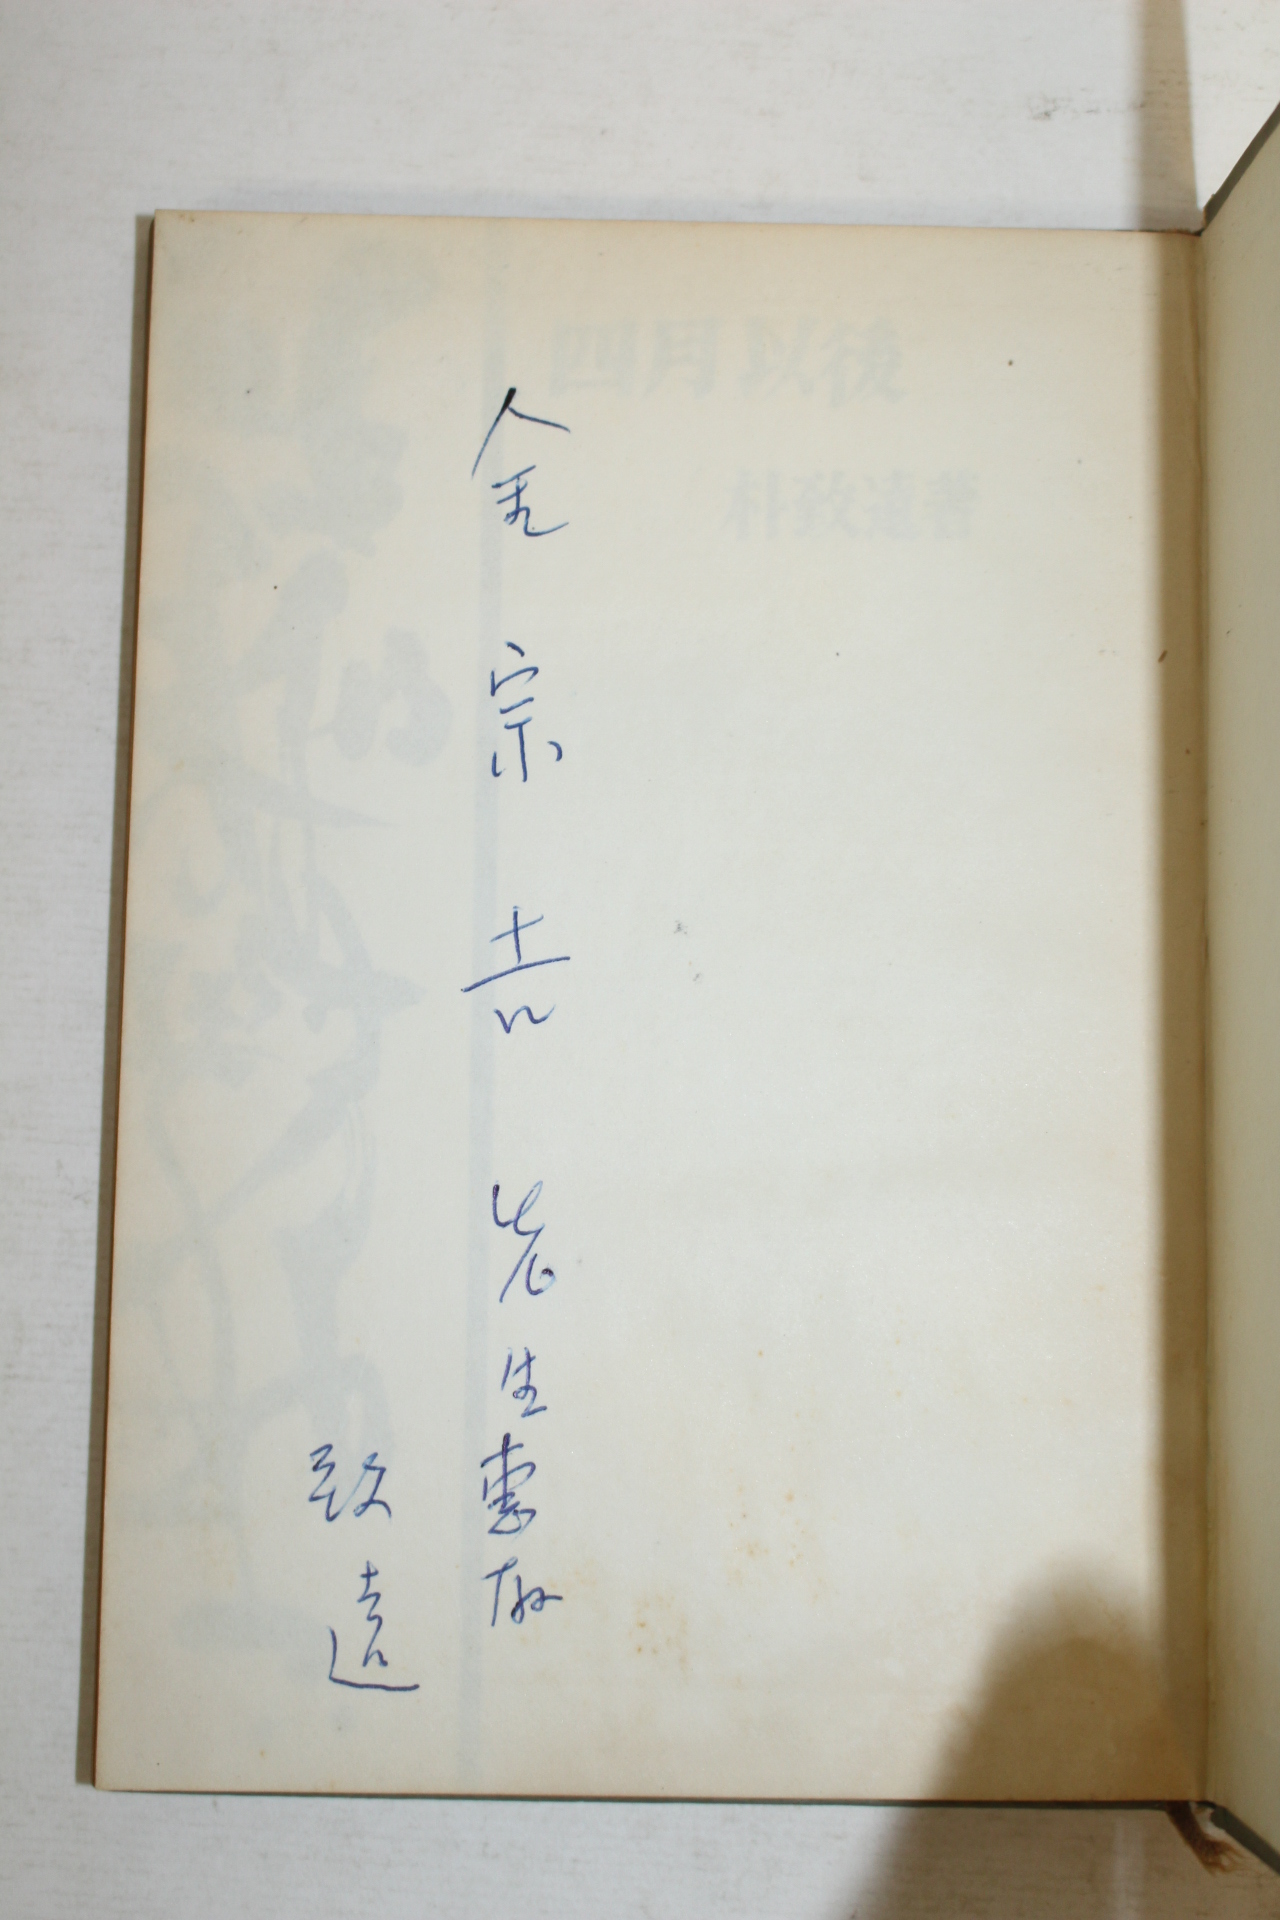 四月以後
朴致遠著
金宗吉先生惠存
致遠